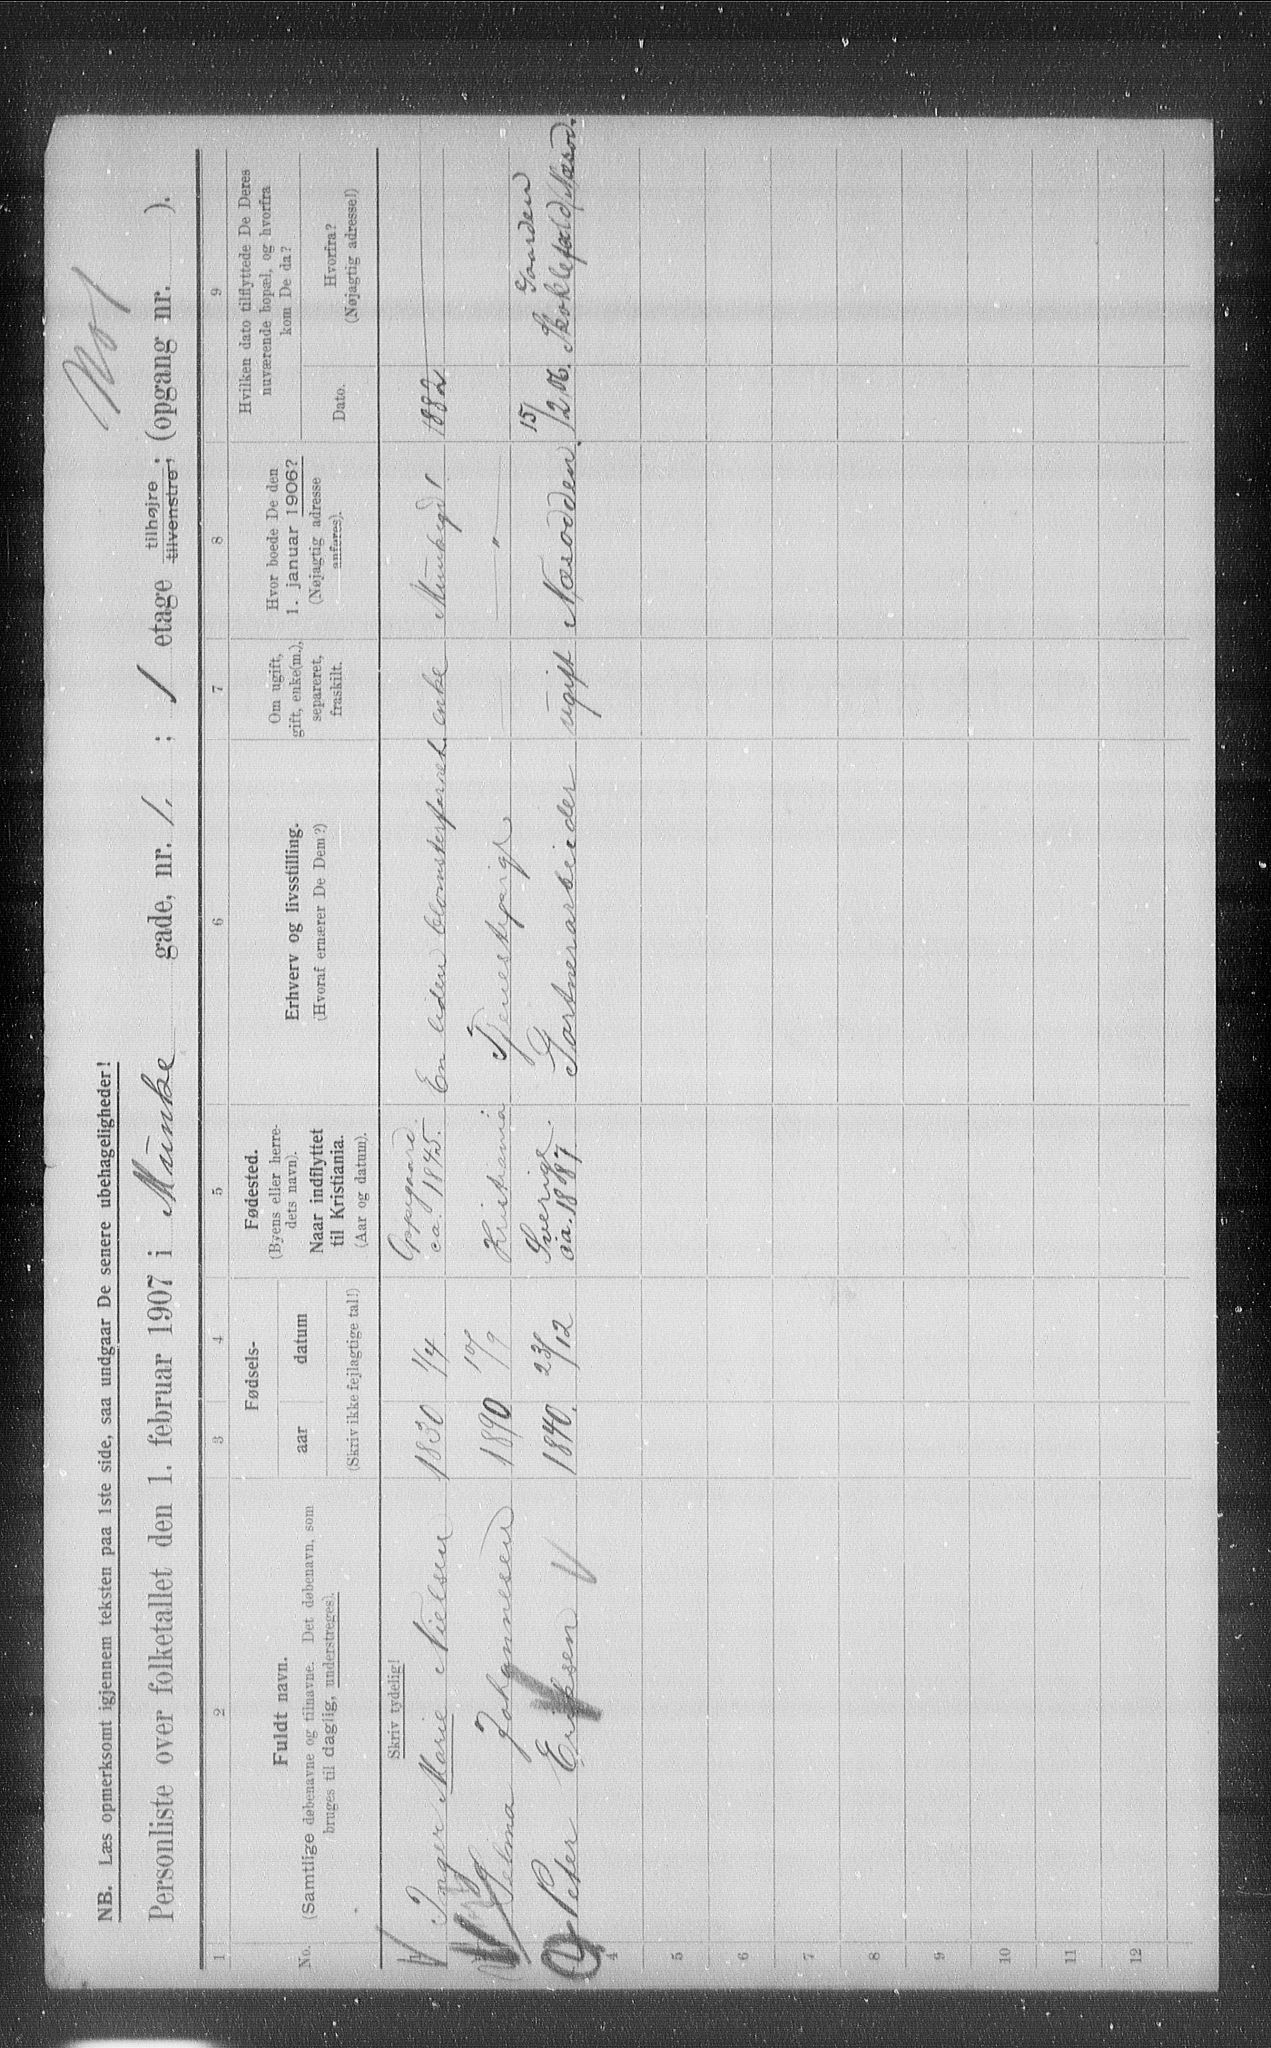 No 1
NB. Læs opmerksomt igjennem teksten paa 1ste side, saa undgaar De senere ubehageligheder!
Personliste over folketallet den 1. februar 1907 i Munke gade, nr. 1. ; 1 etage tilhøjre ; tilvenstre ; (opgang nr. ).
1 2 3 4 5 6 7 8 9
No.
Fuldt navn.
(Samtlige døbenavne og tilnavne. Det døbenavn, som
bruges til daglig, understreges).
Fødsels-
aar datum
(Skriv ikke fejlagtige tal!)
Fødested.
(Byens eller herre-
dets navn).
Naar indflyttet
til Kristiania.
(Aar og datum).
Erhverv og livsstilling.
(Hvoraf ernærer De Dem?)
Om ugift,
gift, enke(m.),
separeret,
fraskilt.
Hvor boede De den
1. januar 1906?
(Nøjagtig adresse
anføres).
Hvilken dato tilflyttede De Deres
nuværende bopæl, og hvorfra
kom De da?
Dato.
Hvorfra?
(Nøjagtig adresse!)
Skriv tydelig!
Inger Marie Nielsen 1830 1/4 Oppegaard. ca. 1845. En liden blomsterforret. enke Munkegd 1. 1882
Selma Johannesen 1890 10/9 Kristiania Tjenestepige — " —
Peter Eriksen 1840. 23/12 Sverige. ca. 1887. Gartnerarbeider ugift Næsodden. 15/12 06. Gaarden Skoklefald Næsod.
4
5
6
7
8
9
10
11
12